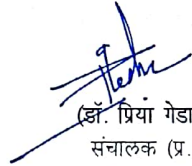 (डॉ. प्रिया गेडा
संचालक (प्र.